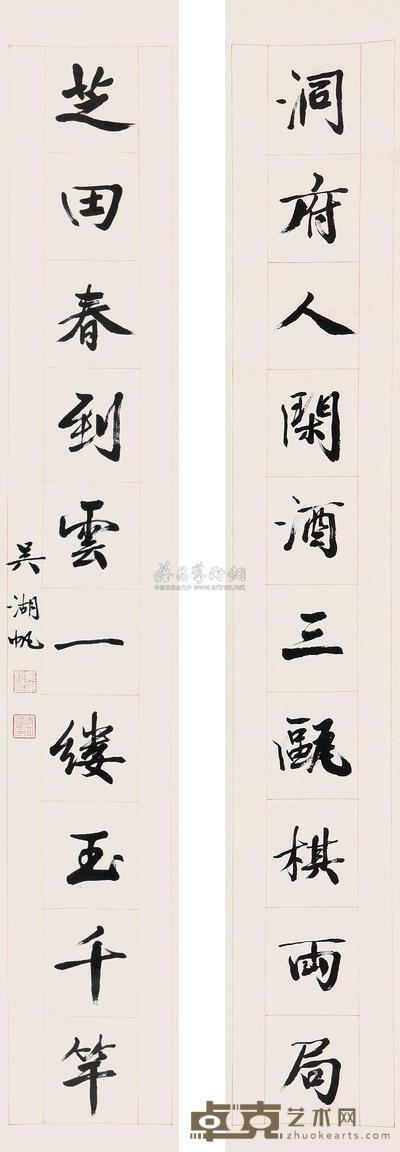 洞府人閑酒三甌棋兩局
芝田春到雲一縷玉千竿
吳湖帆
雅昌藝術網
www.artron.net
卓克艺术网
zhuokearts.com